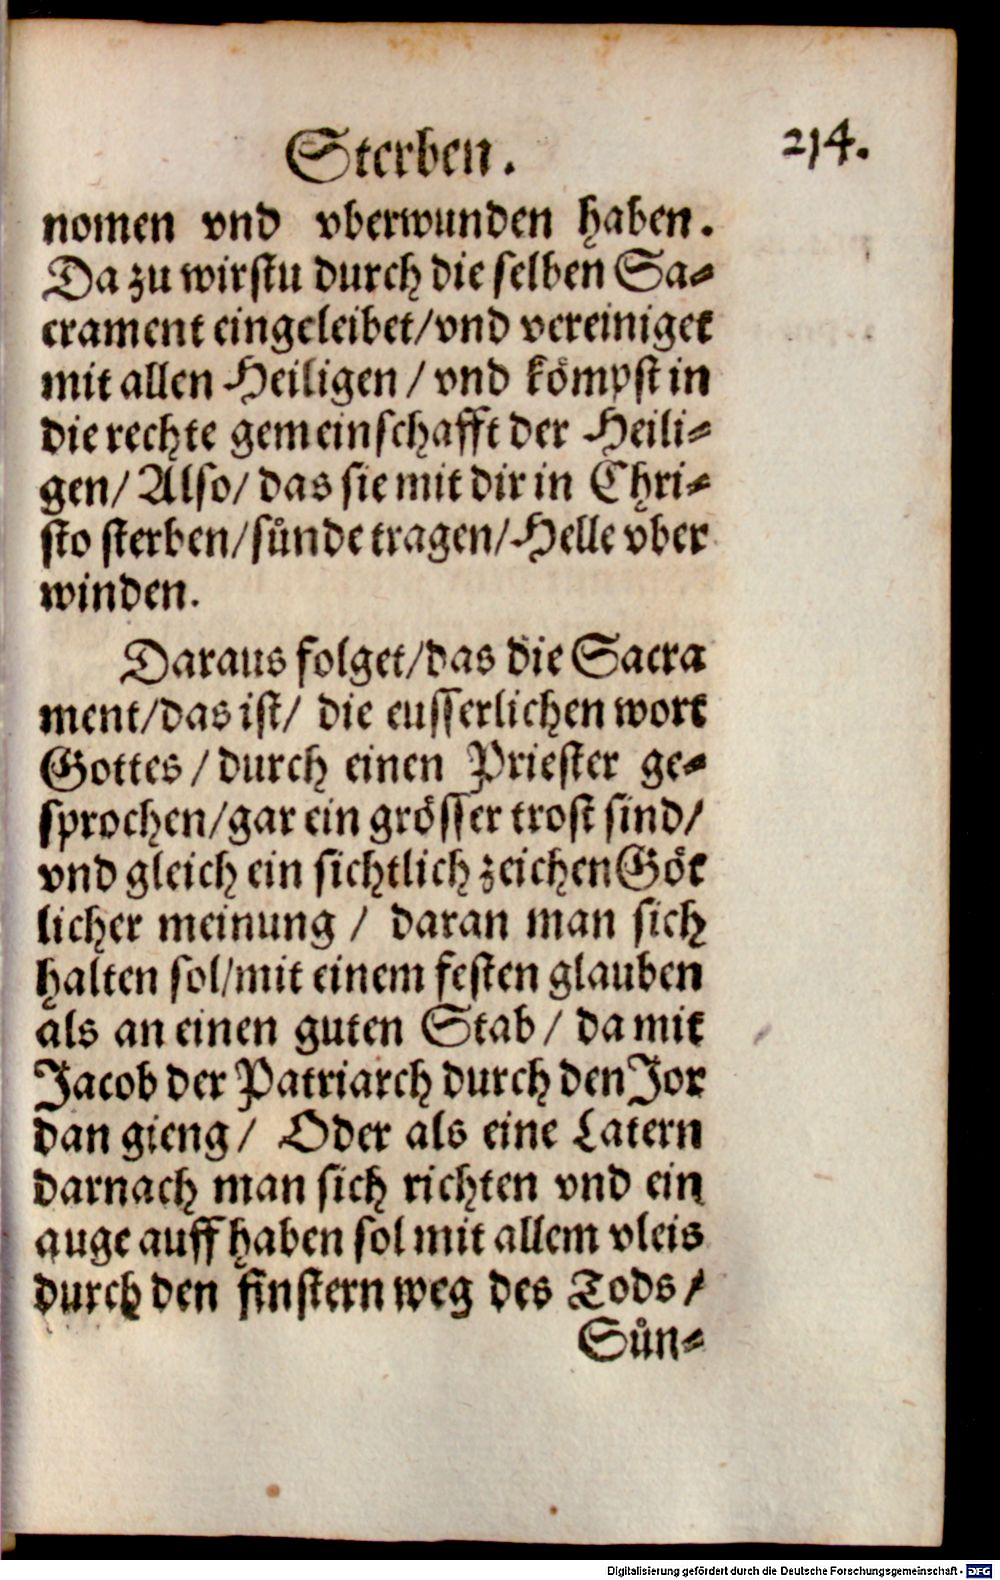 Sterben.
214.
nomen vnd vberwunden haben.
Da zu wirstu durch die selben Sa-
crament eingeleibet/vnd vereiniget
mit allen Heiligen / vnd kömpst in
die rechte gemeinschafft der Heili-
gen/ Also/ das sie mit dir in Chri-
sto sterben/sůnde tragen/Helle vber
winden.
Daraus folget/das die Sacra
ment/das ist/ die eusserlichen wort
Gottes / durch einen Priester ge-
sprochen/gar ein grösser trost sind/
vnd gleich ein sichtlich zeichen Göt
licher meinung / daran man sich
halten sol/mit einem festen glauben
als an einen guten Stab / da mit
Jacob der Patriarch durch den Jor
dan gieng / Oder als eine Latern
darnach man sich richten vnd ein
auge auff haben sol mit allem vleis
durch den finstern weg des Tods /
Sůn-
Digitalisierung gefördert durch die Deutsche Forschungsgemeinschaft - DFG